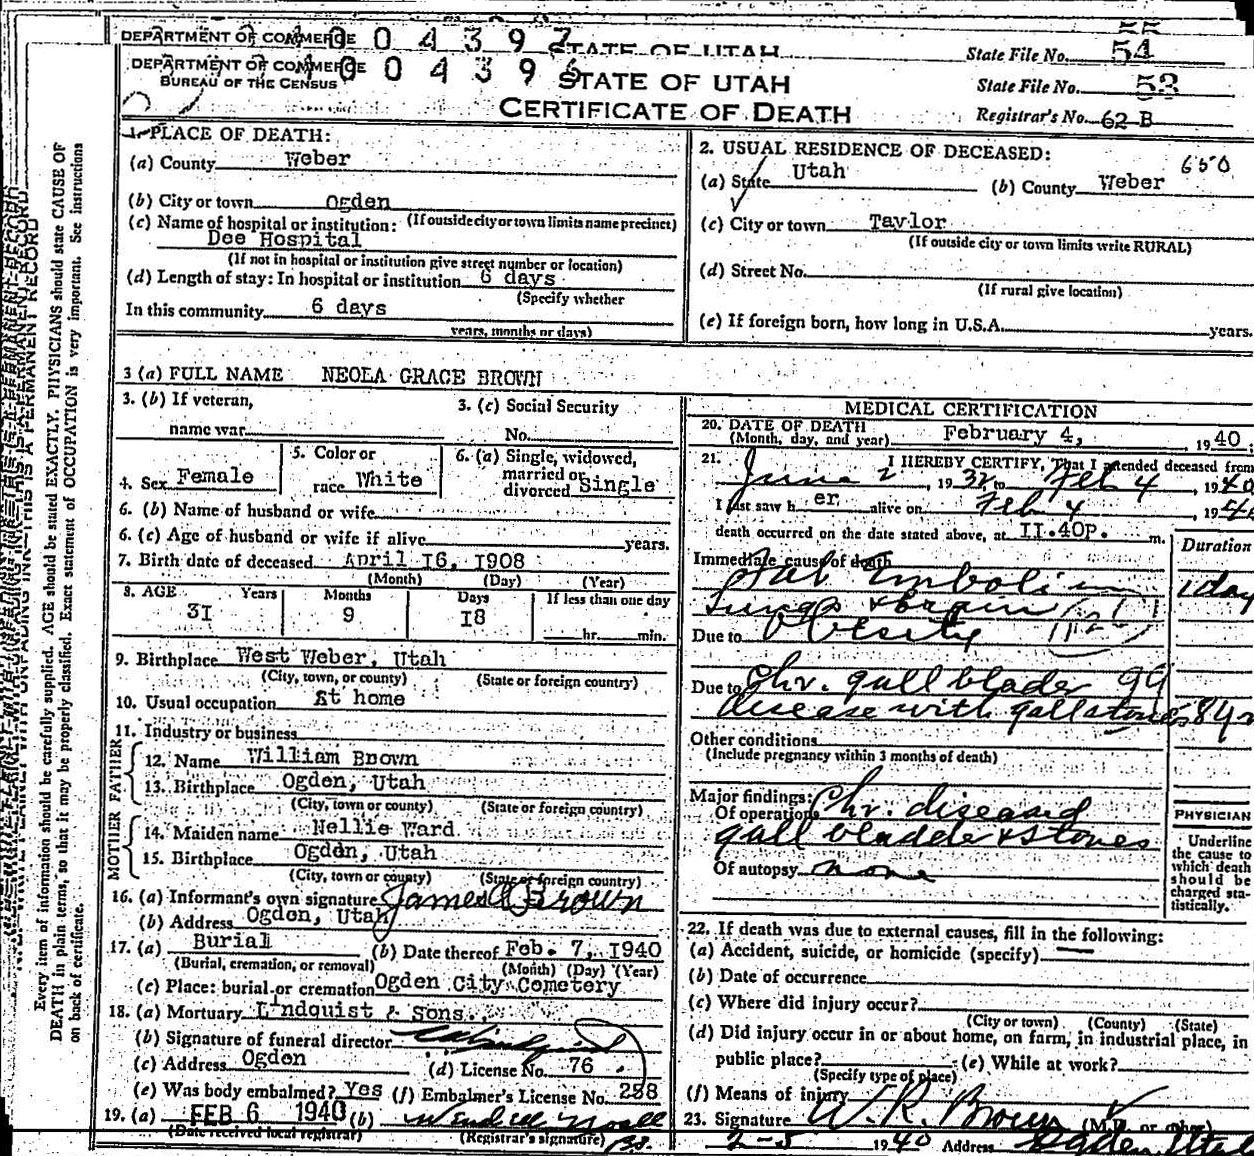 DEPARTMENT OF COMMERCE STATE OF UTAH State File No. 54
DEPARTMENT OF COMMERCE STATE OF UTAH State File No. 53
BUREAU OF THE CENSUS
CERTIFICATE OF DEATH Registrar's No. 62 B
1. PLACE OF DEATH:
(a) County Weber
(b) City or town Ogden
(If outside city or town limits name precinct)
(c) Name of hospital or institution:
Dee Hospital
(If not in hospital or institution give street number or location)
(d) Length of stay: In hospital or institution 6 days
(Specify whether
In this community 6 days
years, months or days)
2. USUAL RESIDENCE OF DECEASED: 650
(a) State Utah (b) County Weber
(c) City or town Taylor
(If outside city or town limits write RURAL)
(d) Street No.
(If rural give location)
(e) If foreign born, how long in U.S.A. years.
3 (a) FULL NAME NEOLA GRACE BROWN
3. (b) If veteran, name war
3. (c) Social Security No.
4. Sex Female
5. Color or race White
6. (a) Single, widowed, married or divorced Single
6. (b) Name of husband or wife
6. (c) Age of husband or wife if alive years.
7. Birth date of deceased April 16, 1908
(Month) (Day) (Year)
8. AGE Years Months Days If less than one day
31 9 18 hr. min.
9. Birthplace West Weber, Utah
(City, town, or county) (State or foreign country)
10. Usual occupation At home
11. Industry or business
FATHER
12. Name William Brown
13. Birthplace Ogden, Utah
(City, town or county) (State or foreign country)
MOTHER
14. Maiden name Nellie Ward
15. Birthplace Ogden, Utah
(City, town or county) (State or foreign country)
16. (a) Informant's own signature James Brown
(b) Address Ogden, Utah
17. (a) Burial (b) Date thereof Feb. 7, 1940
(Burial, cremation, or removal) (Month) (Day) (Year)
(c) Place: burial or cremation Ogden City Cemetery
18. (a) Mortuary Lindquist & Sons.
(b) Signature of funeral director
(c) Address Ogden (d) License No. 76
(e) Was body embalmed? Yes (f) Embalmer's License No. 258
19. (a) FEB 6 1940 (b)
(Date received local registrar) (Registrar's signature)
MEDICAL CERTIFICATION
20. DATE OF DEATH
(Month, day, and year) February 4, 1940
21. I HEREBY CERTIFY, That I attended deceased from
June 2, 1932 to Feb 4, 1940
I last saw her alive on Feb 4 1940
death occurred on the date stated above, at 11.40p. m.
Immediate cause of death Duration
Fat Embolism 1 day
Lungs & brain
Due to Obesity
Due to Chr. gall blader
disease with gallstones
Other conditions
(Include pregnancy within 3 months of death)
Major findings:
Of operations Chr. diseased
gall bladder & stones
Of autopsy none
PHYSICIAN
Underline
the cause to
which death
should be
charged sta-
tistically.
22. If death was due to external causes, fill in the following:
(a) Accident, suicide, or homicide (specify) —
(b) Date of occurrence
(c) Where did injury occur?
(City or town) (County) (State)
(d) Did injury occur in or about home, on farm, in industrial place, in
public place? (e) While at work?
(Specify type of place)
(f) Means of injury
23. Signature W. R. Brown (M.D. or other)
2-5 1940 Address Ogden, Utah
Every item of information should be carefully supplied. AGE should be stated EXACTLY. PHYSICIANS should state CAUSE OF
DEATH in plain terms, so that it may be properly classified. Exact statement of OCCUPATION is very important. See instructions
on back of certificate.
THIS IS A PERMANENT RECORD